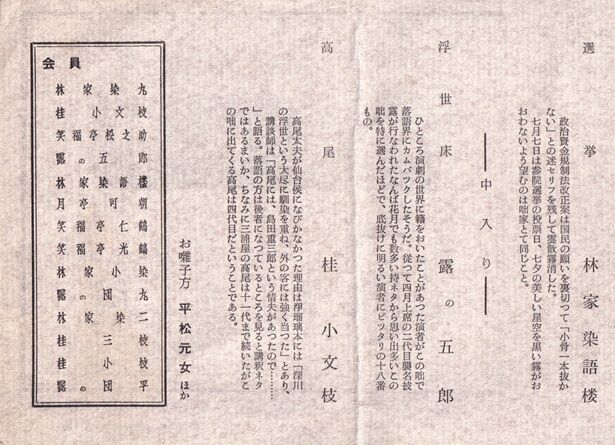 選挙　林家染語楼
政治資金規制法改正案は国民の願いを裏切つて「小骨一本抜か
ない」との迷セリフを残して霊散霧消した。
七月七日は参院選挙の投票日、七夕の美しい星空を黒い霧がお
おわないよう望むのは咄家とて同じこと。
――中入り――
浮世床　露の五郎
ひところ演劇の世界に籍をおいたことがあつた演者がこの咄で
落語界にカムバツクしたそうだ。従つて四月上席の二代目襲名披
露が行なわれたなんば花月でも数多い持ネタから思い出多いこの
咄を特に選んだほどで、底抜けに明るい演者にピツタリの十八番
もの。
高尾　桂小文枝
高尾太夫が仙台侯になびかなかつた理由は浄瑠璃本には「深川
の浮世という大尽に馴染を重ね、外の客には強く当つた」とあり、
講談師は「高尾には、島田重三郎という情夫があつたので………
」と語る。落語の方は後者になつているところを見ると講釈ネタ
ではあるまいか、ちなみに三浦屋の高尾は十一代まで続いたがこ
の咄に出てくる高尾は四代目だということである。
お囃子方　平松元女　ほか
会員
林家染丸
桂小文枝
笑福亭松之助
露の五郎
林家染語楼
月亭可朝
笑福亭仁鶴
笑福亭光鶴
林家小染
露の団丸
林家染二
桂三枝
桂小枝
露の団平